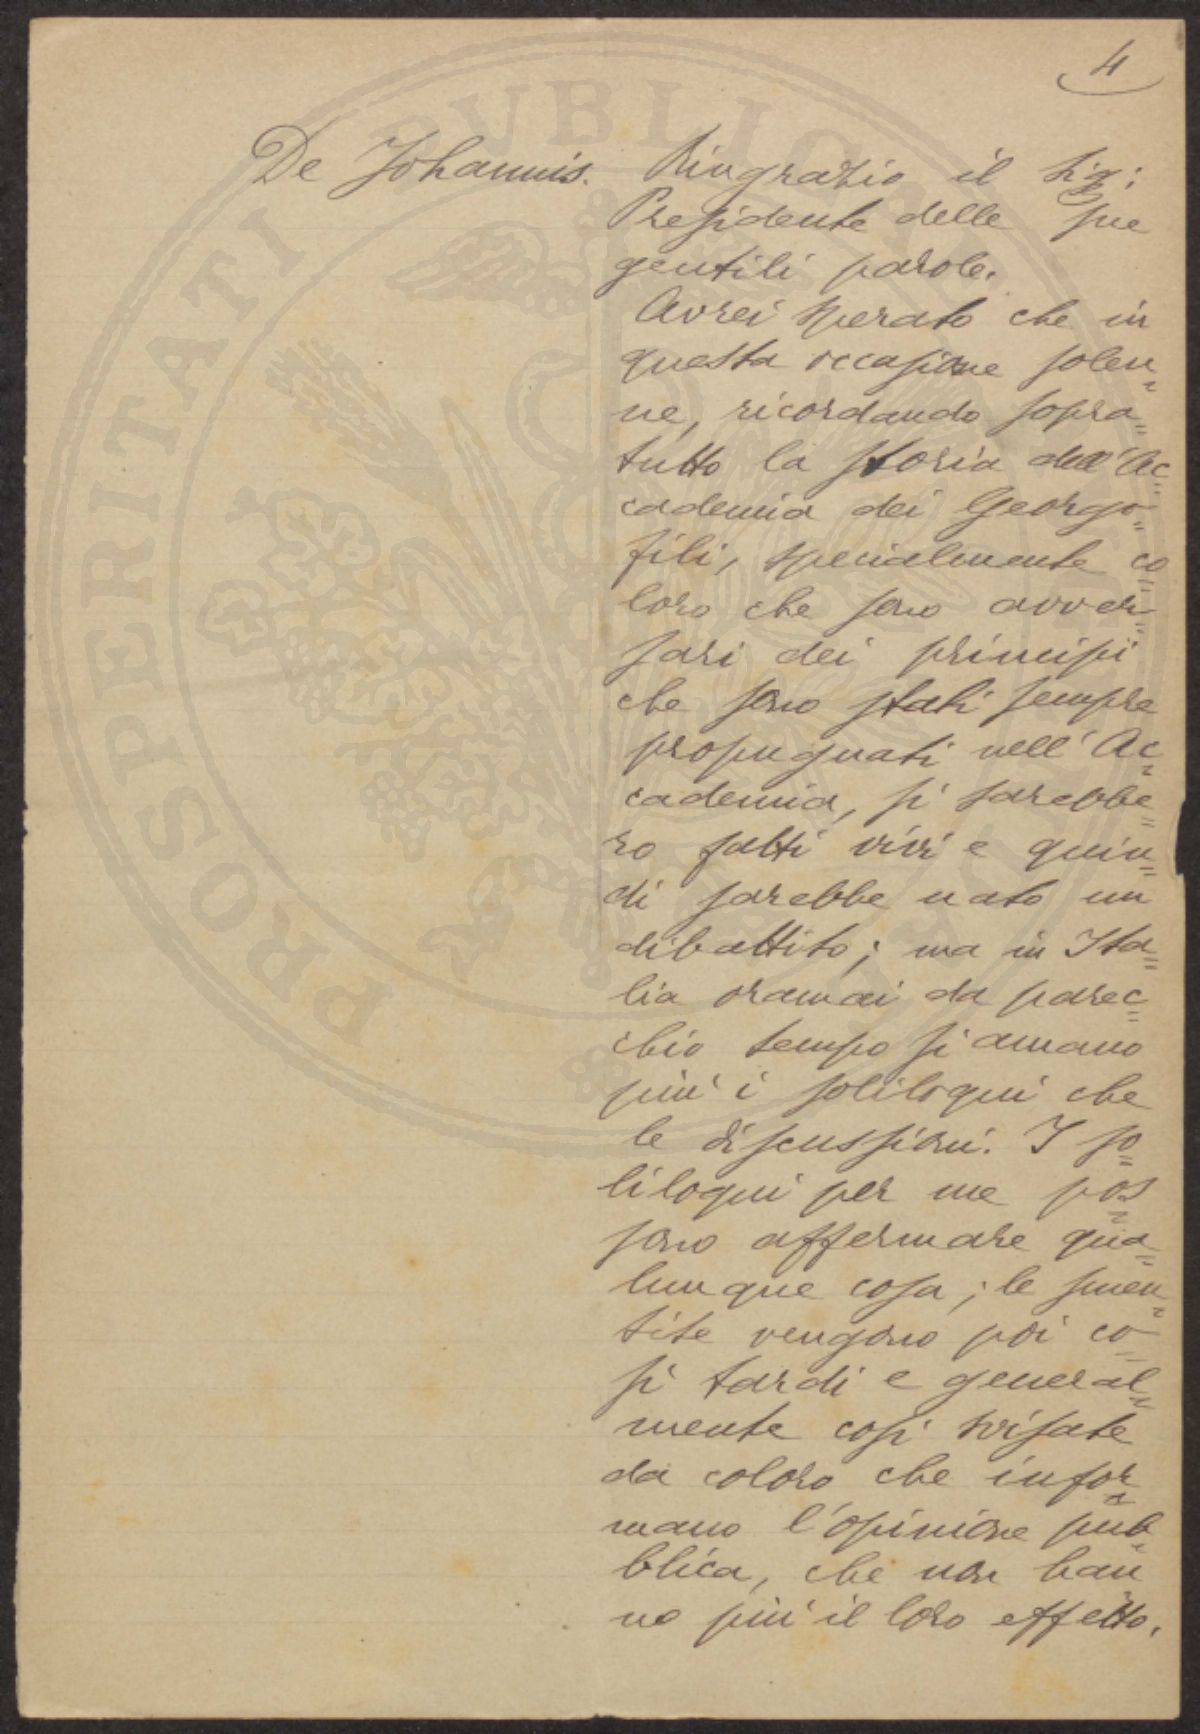 4
De Johannis. Ringrazio il Sig:
Presidente delle sue
gentili parole.
Avrei sperato che in
questa occasione solen=
ne, ricordando sopra=
tutto la storia dell'Ac=
cademia dei Georgo=
fili, specialmente co=
loro che sono avver=
sari dei principi
che sono stati sempre
propugnati nell'Ac=
cademia, si sarebbe=
ro fatti vivi e quin=
di sarebbe nato un
dibattito; ma in Ita=
lia oramai da parec=
chio tempo si amano
più i soliloqui che
le discussioni. I so=
liloqui per me pos=
sono affermare qua=
lunque cosa; le smen=
tite vengono poi co=
sì tardi e general=
mente così svisate
da coloro che infor=
mano l'opinione pub=
blica, che non han
no più il loro effetto.
PROSPERITATI PUBLICAE